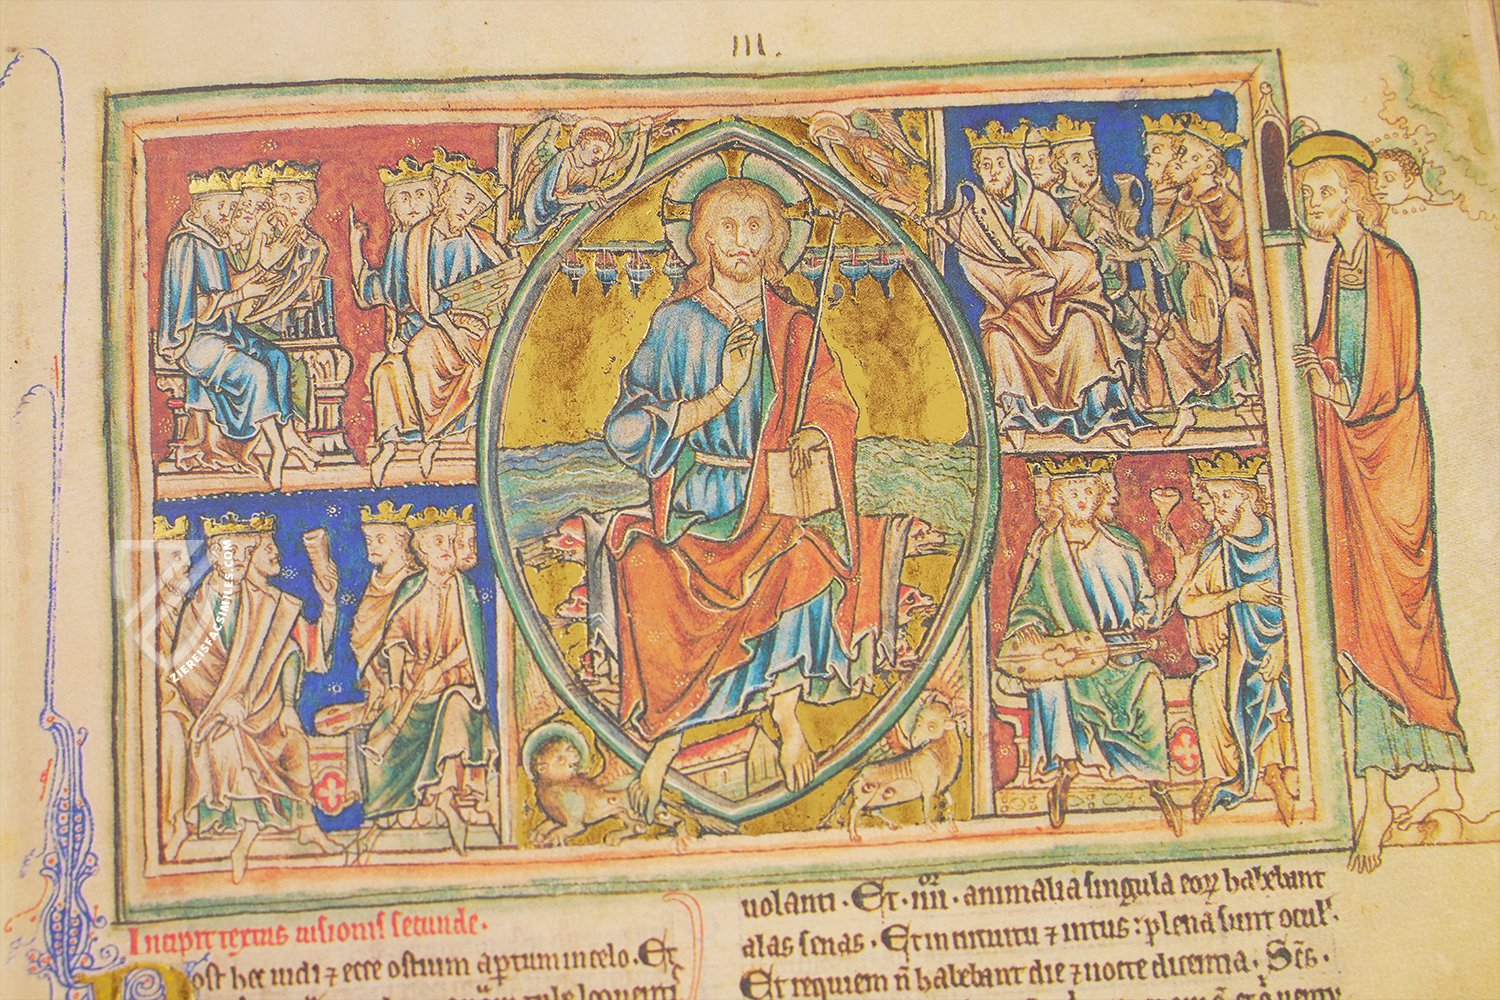 III.
ZIEREISFACSIMILES.COM
Incipit textus visionis secunde.
ost hec uidi ⁊ ecce ostium aptum in celo. Et
uolanti. Et .iiii. animalia singula eoꝝ habebant
alas senas. Et in circuitu ⁊ intus: plena sunt ocul.
Et requiem n̄ habebant die ⁊ nocte dicentia. Sc̄s.